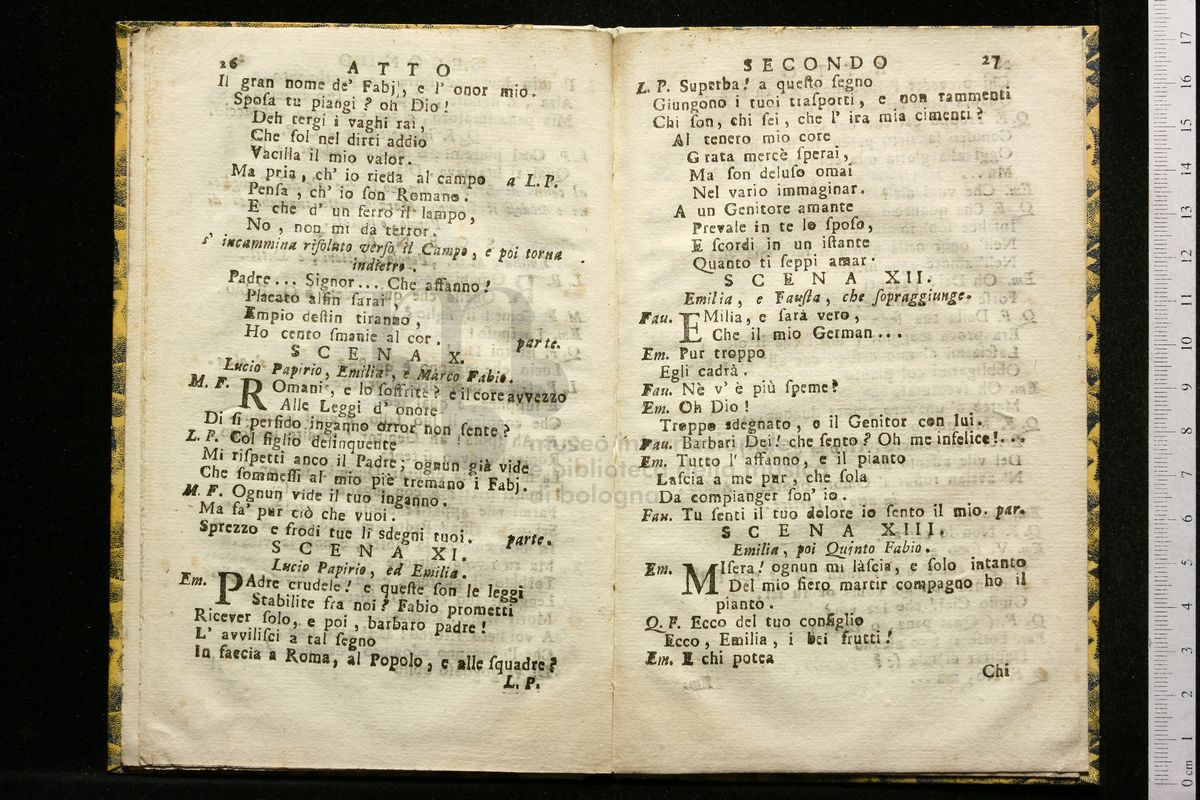 26
A T T O
Il gran nome de' Fabj, e l' onor mio.
Sposa tu piangi? oh Dio!
Deh tergi i vaghi rai,
Che sol nel dirti addio
Vacilla il mio valor.
Ma pria, ch' io rieda al campo a L.P.
Pensa, ch' io son Romano.
E che d' un ferro il lampo,
No, non mi dà terror.
s' incammina risoluto verso il Campo, e poi torna
indietro.
Padre... Signor... Che affanno!
Placato alfin sarai,
Empio destin tiranno,
Ho cento smanie al cor. parte.
S C E N A X.
Lucio Papirio, Emilia, e Marco Fabio.
M. F. ROmani, e lo soffrite? e il core avvezzo
Alle Leggi d' onore
Di sì perfido inganno orror non sente?
L. P. Col figlio delinquente
Mi rispetti anco il Padre; ognun già vide
Che sommessi al mio piè tremano i Fabj.
M. F. Ognun vide il tuo inganno.
Ma fa' pur ciò che vuoi.
Sprezzo e frodi tue li sdegni tuoi. parte.
S C E N A XI.
Lucio Papirio, ed Emilia.
Em. PAdre crudele! e queste son le leggi
Stabilite fra noi? Fabio prometti
Ricever solo, e poi, barbaro padre!
L' avvilisci a tal segno
In faccia a Roma, al Popolo, e alle squadre?
L. P.
S E C O N D O
27
L. P. Superba! a questo segno
Giungono i tuoi trasporti, e non rammenti
Chi son, chi sei, che l' ira mia cimenti?
Al tenero mio core
Grata mercè sperai,
Ma son deluso omai
Nel vario immaginar.
A un Genitore amante
Prevale in te lo sposo,
E scordi in un istante
Quanto ti seppi amar.
S C E N A XII.
Emilia, e Fausta, che sopraggiunge.
Fau. EMilia, e sarà vero,
Che il mio German...
Em. Pur troppo
Egli cadrà.
Fau. Nè v' è più speme?
Em. Oh Dio!
Troppo sdegnato, è il Genitor con lui.
Fau. Barbari Dei! che sento? Oh me infelice!...
Em. Tutto l' affanno, e il pianto
Lascia a me pur, che sola
Da compianger son' io.
Fau. Tu senti il tuo dolore io sento il mio. par.
S C E N A XIII.
Emilia, poi Quinto Fabio.
Em. MIsera! ognun mi làscia, e solo intanto
Del mio fiero martir compagno ho il
pianto.
Q. F. Ecco del tuo configlio
Ecco, Emilia, i bei frutti!
Em. E chi potea
Chi